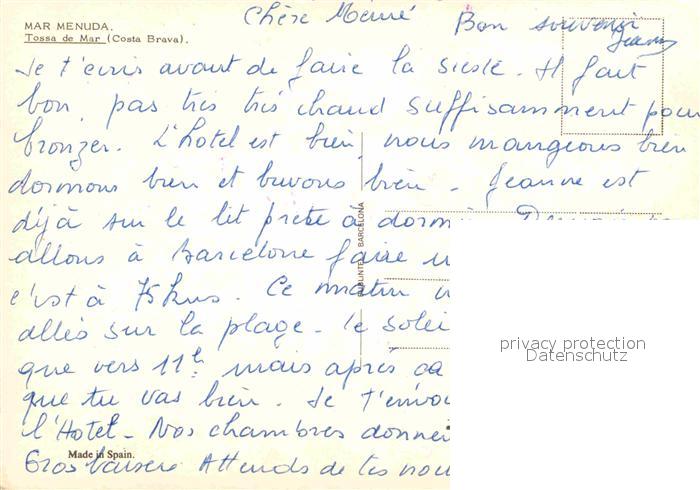 MAR MENUDA.
Tossa de Mar (Costa Brava).
Chère Mémé
Bon souvenir
Jeanne
Je t'ecris avant de faire la sieste. Il fait
bon, pas très très chaud suffisamment pour
bronzer. L'hotel est bien, nous mangeons bien
dormons bien et buvons bien. Jeanne est
déjà sur le lit prete à dormir. Demain
allons à Barcelone faire
c'est à 75 kms. Ce matin
allés sur la plage. le solei
que vers 11h mais après ca
que tu vas bien. Je t'envoi
l'Hotel. Nos chambres donnen
Gros baisers Attends de tes nou
PUBLINTER BARCELONA
Made in Spain.
privacy protection
Datenschutz